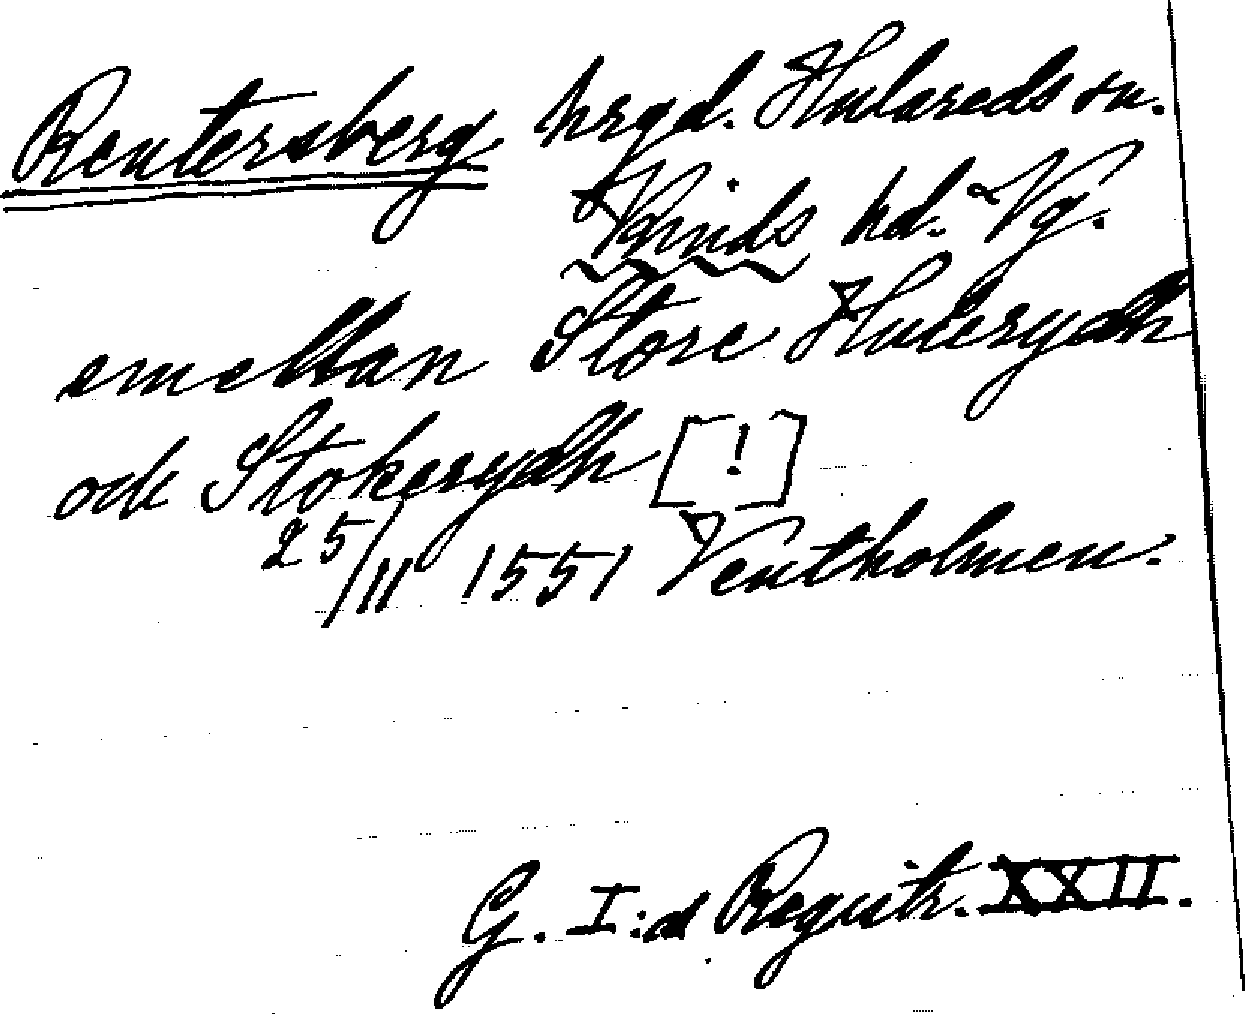 Reutersberg hrgd. Hulareds sn.
Kinds hd. Vg.
emellan Store Hulerydh
ock Stokerydh [!]
25/11 1551 Ventholmen.
G. I:s Registr. XXII.